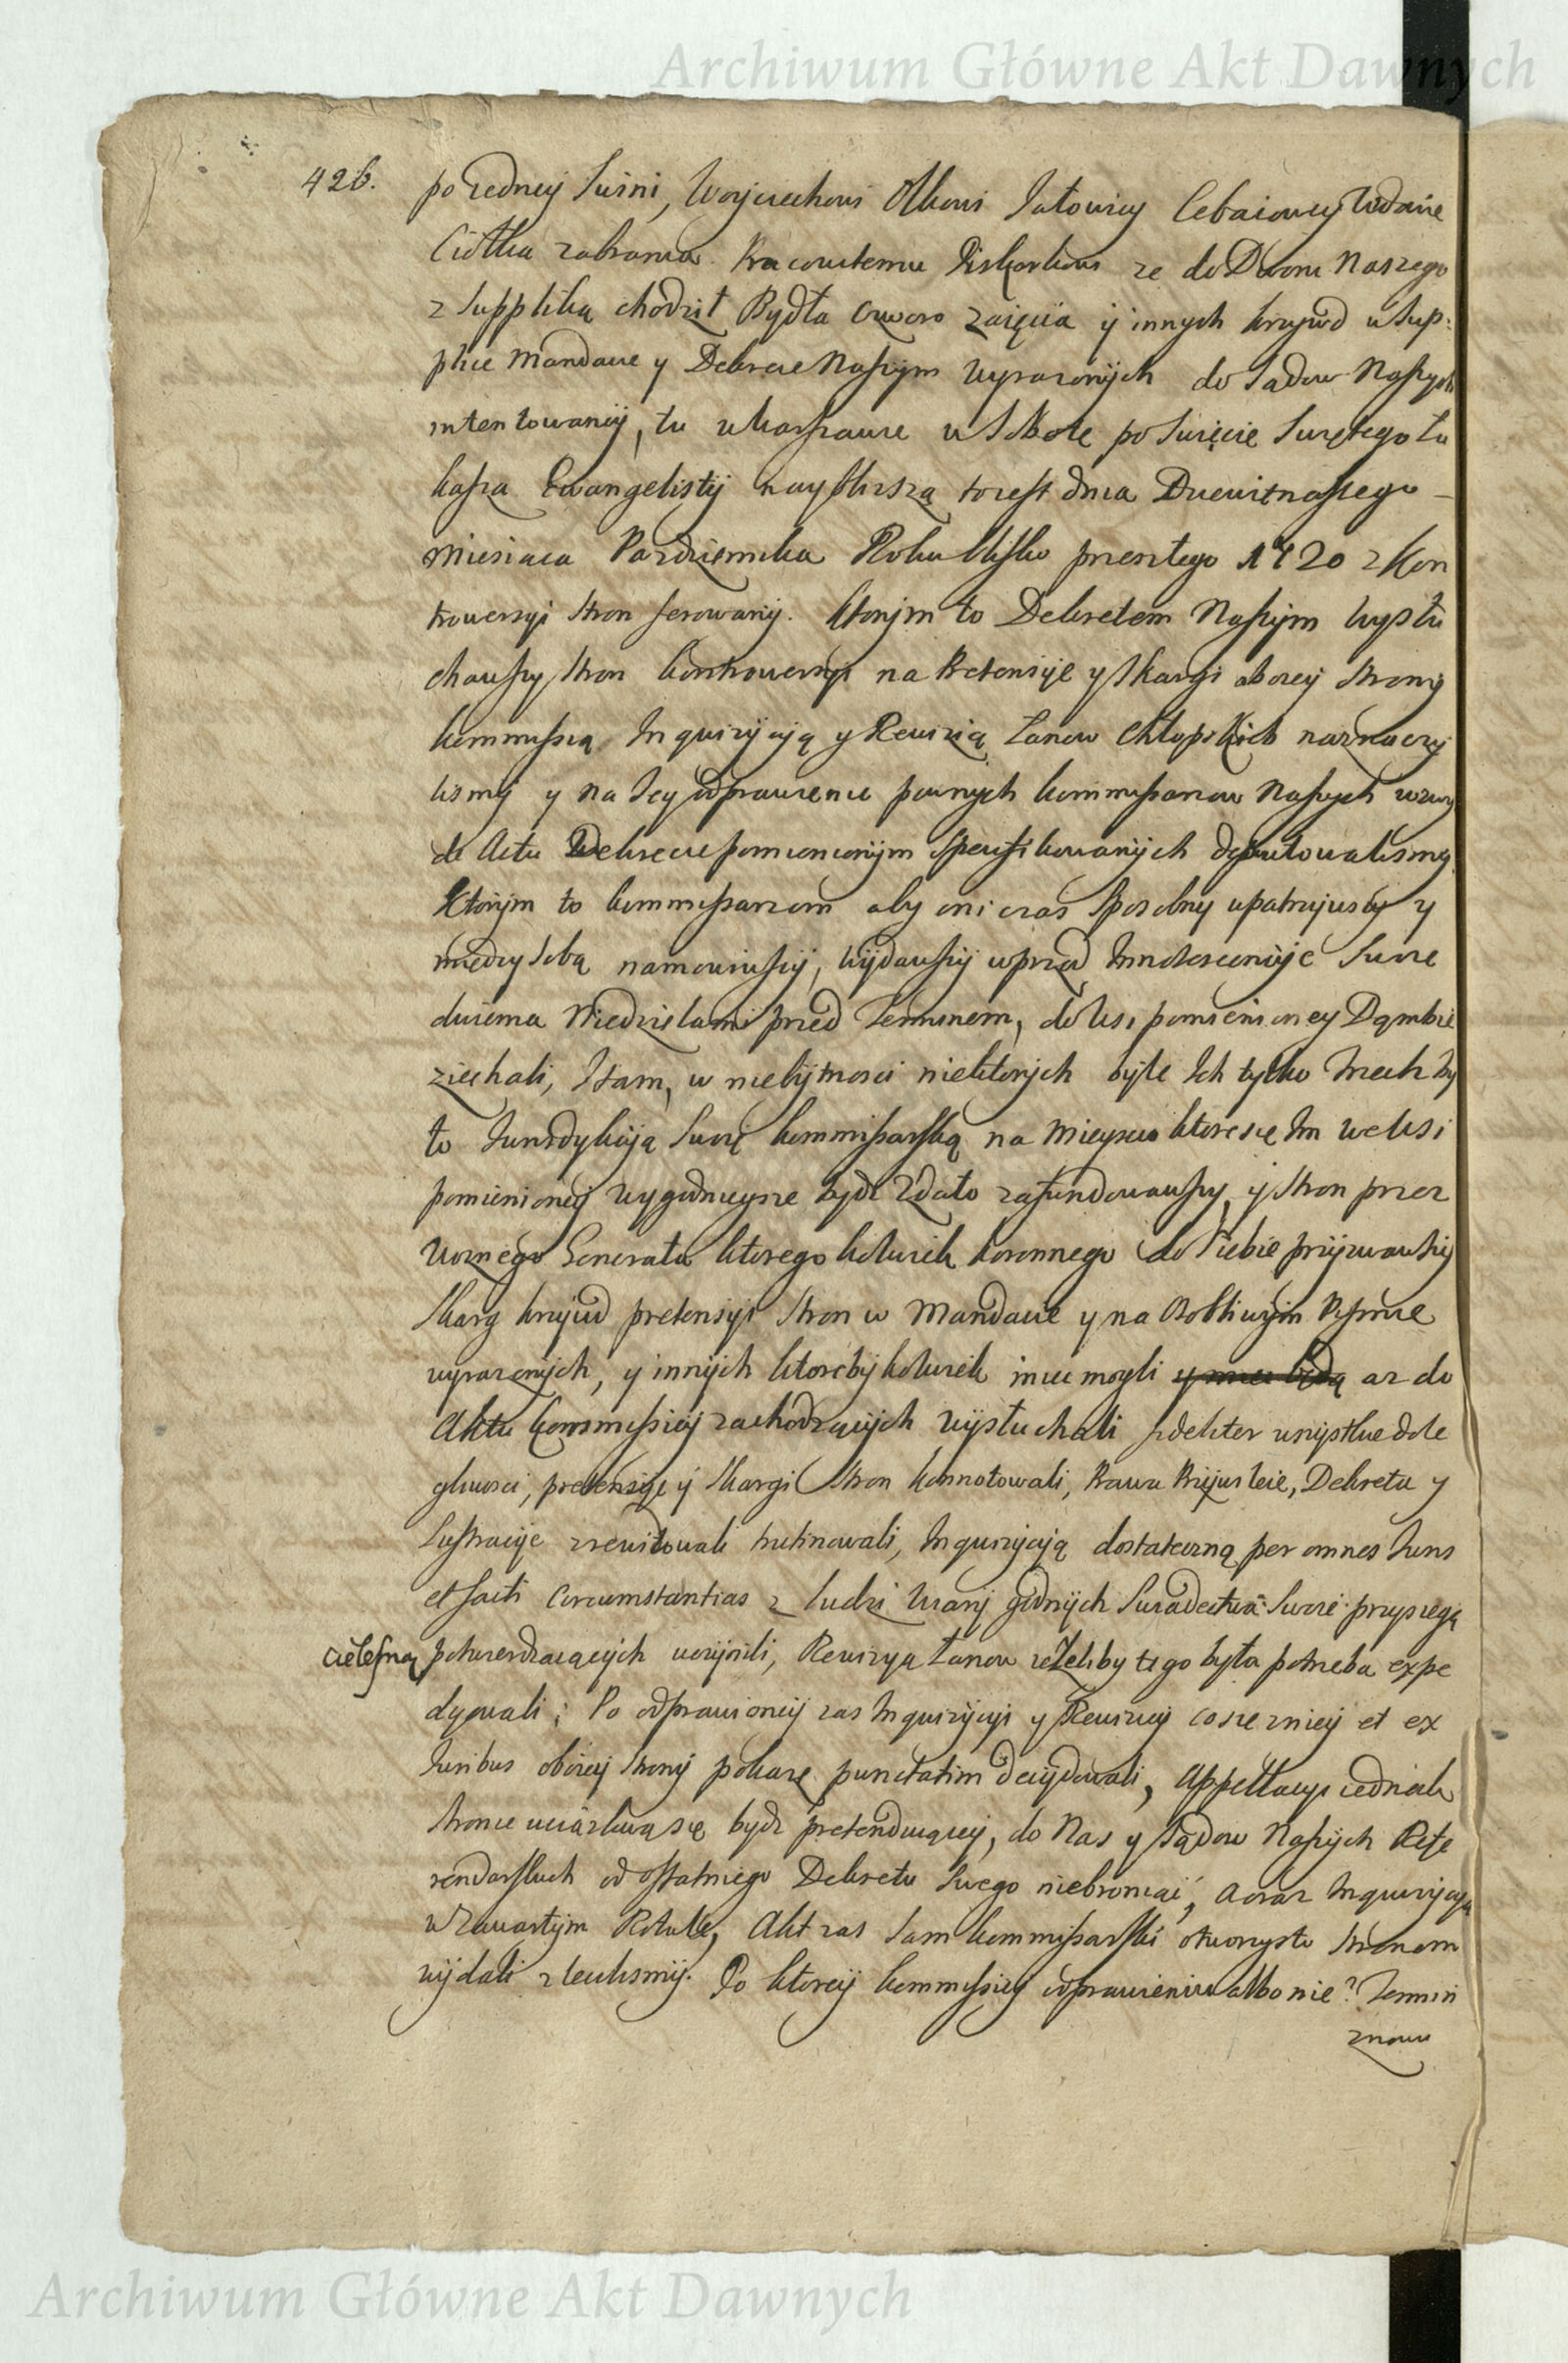 Archiwum Główne Akt Dawnych
426.
po iedney Swini, Woyciechowi Olkowi Jałowicy Cebaiowey Wdowie
Ciołka zabrania Pracowitemu Piskorkowi ze do Dworu Naszego
z Suppliką chodził Bydła czworo zaięcia y innych krzywd w Sup:
plice Mandacie y Dekrecie Naszym wyrazonych do Sądow Naszych
intentowaney, tu w Warszawie w Sobotę po Swięcie Swiętego Łu
kasza Ewangelisty nayblizszą to iest dnia Dziewiętnastego
Miesiąca Pazdziernika Roku blisko przeszłego 1720 z Kon
trowersyi stron ferowany. Ktorym to Dekretem Naszym wysłu
chawszy stron kontrowersyi na Pretensye y skargi oboiey strony
kommissią Inquizycyą y Rewizią Łanow Chłopskich naznaczy
lismy y na Iey odprawienie pewnych kommissarzow Naszych
do Aktu w Dekrecie pomienionym specifikowanych deputowalismy
Ktorym to kommissarzom aby oni czas sposobny upatrzywszy y
między sobą namowiwszy, wydawszy wprzod Innotescencye Swoie
dwiema Niedzielami przed Terminem, do Wsi pomienioney Dąmbie
ziechali, I tam, w niebytnosci niektorych byle Ich tylko Trzech by
ło Iurisdykcyą Swoię kommissarską na Mieyscu ktore się Im we Wsi
pomienioney wygodnieysze bydz zdało zafundowawszy, y stron przez
Woznego Generała ktoregokolwiek koronnego do Siebie przyzwawszy
Skarg krzywd pretensyi stron w Mandacie y na Osobliwym Pismie
wyrazonych, y innych ktorebykolwiek miec mogli y miec będą az do
Aktu kommissiey zachodzących wysłuchali fideliter wszystkie dole
gliwosci, pretensye y skargi stron konnotowali, Prawa Przywileie, Dekreta y
Lustracye zrewidowali trutinowali, Inquizycyą dostateczną per omnes Iuris
et facti Circumstantias z ludzi wiary godnych Swiadectwa Swoie przysięgą
cielesną potwierdzaiących uczynili, Rewizyą Łanow ieżeliby tego była potrzeba expe
dyowali; Po odprawioney zas Inquizycyi y Rewizyey co się z niey et ex
Iuribus oboiey strony pokaze punctatim decydowali, Appellacyi iednak
stronie uciązliwą się bydz pretenduiącey, do Nas y Sądow Naszych Refe
rendarskich od ostatniego Dekretu Swego niebroniąc, a oraz Inquizycyą
w Zawartym Rotule, Akt zas sam kommissarski otworzysto stronom
wydali zlecilismy. Po ktorey kommissiey odprawieniu albo nie? Termin
znowu
Archiwum Główne Akt Dawnych